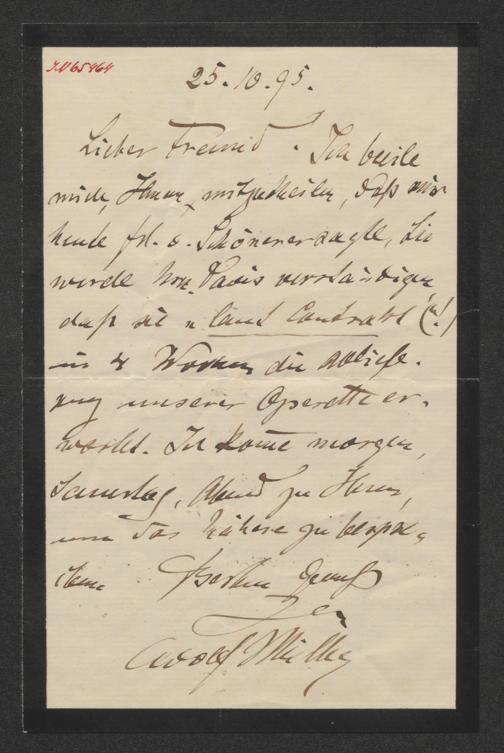 I.N. 65464
25.10.95.
Lieber Freund. Ich beeile
mich, Ihnen mitzutheilen, daß mir
heute frl. v. Schönerer sagte, sie
werde Hrn. verständigen
daß sie "laut Contrakt" (!)
in 4 Wochen die Abliefe-
rung unserer Operette er-
wartet. Ich komme morgen,
Samstag, Abend zu Ihnen,
um das Nähere zu bespre-
chen. Besten Gruß
Ihr
Adolf Müller